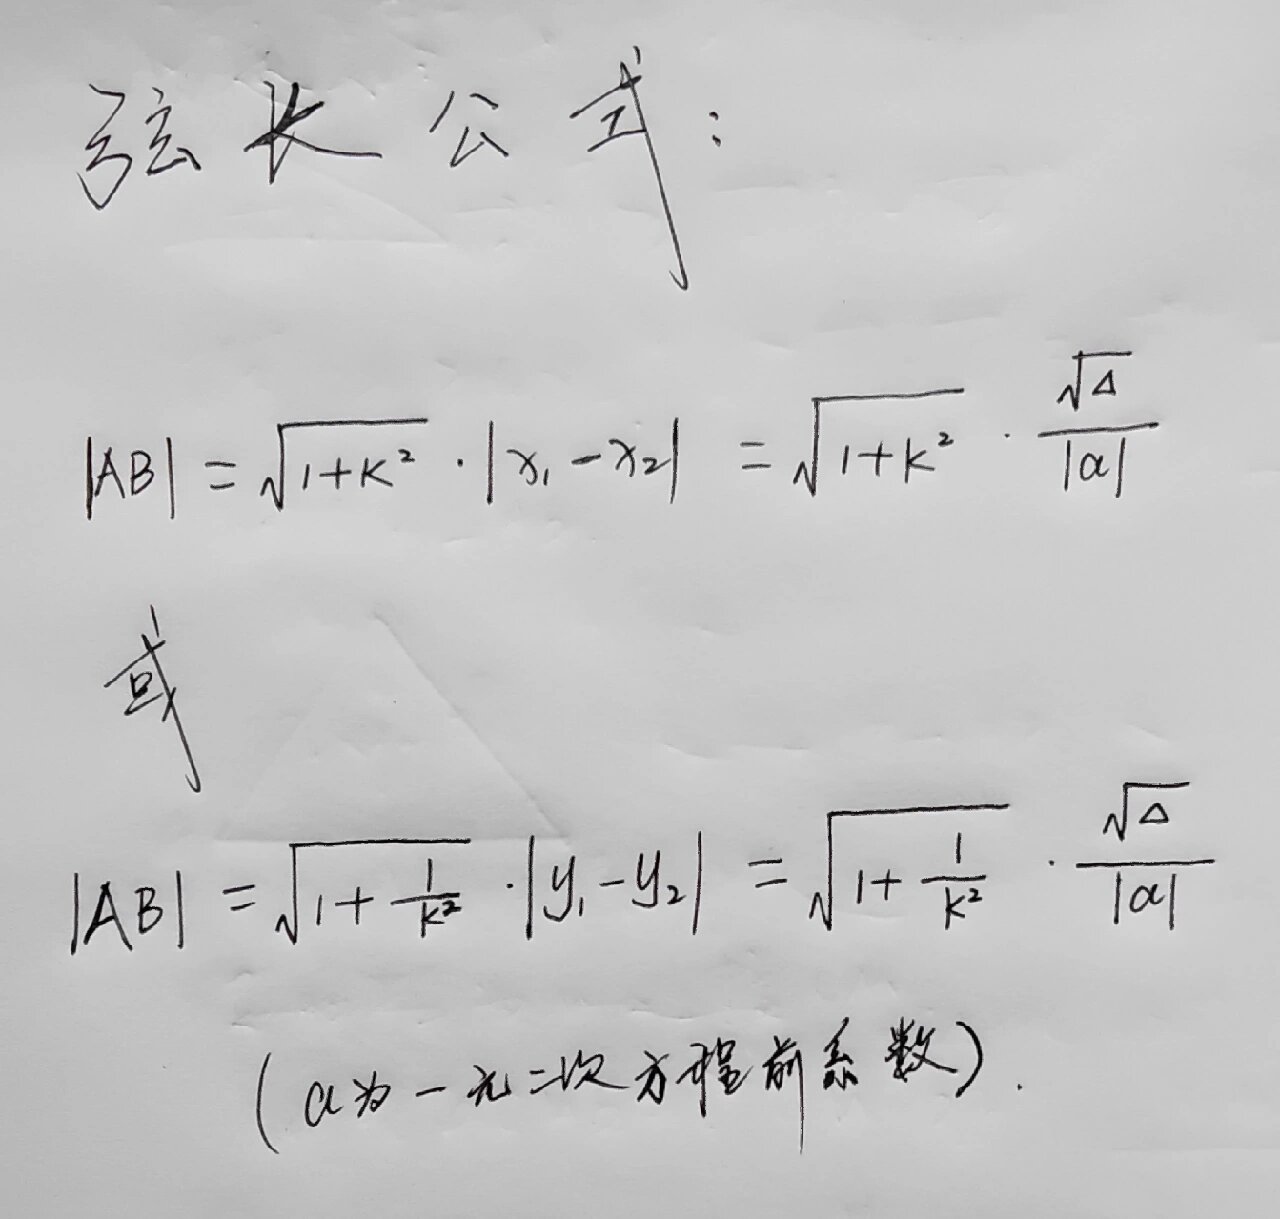 弦长公式:
|AB| = √(1+k²) · |x₁-x₂| = √(1+k²) · √Δ/|a|
或
|AB| = √(1+1/k²) · |y₁-y₂| = √(1+1/k²) · √Δ/|a|
(a为一元二次方程前系数).